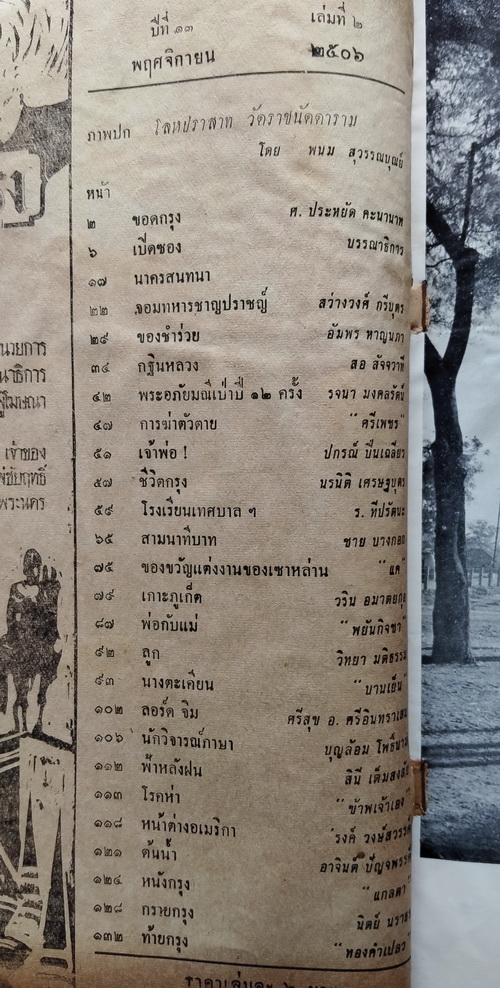 ปีที่ ๑๓ เล่มที่ ๒
พฤศจิกายน ๒๕๐๖
ภาพปก โลหปราสาท วัดราชนัดดาราม
โดย พนม สุวรรณบุณย์
หน้า
๒ ขอดกรุง ศ. ประหยัด คะนานาท
๖ เปิดซอง บรรณาธิการ
๑๗ นาครสนทนา
๒๒ จอมทหารชาญปราชญ์ สว่างวงศ์ กรีบุตร
๒๙ ของชำร่วย อัมพร หาญนภา
๓๔ กฐินหลวง สอ สัจจวาที
๔๒ พระอภัยมณีเป่าปี่ ๑๒ ครั้ง รจนา มงคลรัตน์
๔๗ การฆ่าตัวตาย "ศรีเพชร"
๕๑ เจ้าพ่อ ! ปกรณ์ ปิ่นเฉลียว
๕๗ ชีวิตกรุง นรนิติ เศรษฐบุตร
๕๙ โรงเรียนเทศบาล ฯ ร. ทีปรัตนะ
๖๕ สามนาทีบาท ชาย บางกอก
๗๕ ของขวัญแต่งงานของเซาหล่าน "แค"
๗๙ เกาะภูเก็ต วริน อมาตยกุล
๘๗ พ่อกับแม่ "พยันกิจชา"
๙๒ ลูก วิทยา มติธรรม
๙๓ นางตะเคียน "บานเย็น"
๑๐๒ ลอร์ด จิม ศรีสุข อ. ศรีอินทราเสน
๑๐๖ นักวิจารณ์ภาษา บุญล้อม
๑๑๒ ฟ้าหลังฝน สินี
๑๑๓ โรคห่า "ข้าพเจ้าเอง"
๑๑๘ หน้าต่างอเมริกา 'รงค์ วงษ์สวรรค์
๑๒๑ ต้นน้ำ อาจินต์ ปัญจพรรค์
๑๒๔ หนังกรุง "แกลตา"
๑๒๘ กรายกรุง นิตย์
๑๓๒ ท้ายกรุง "ทองคำเปลว"
ราคาเล่มละ ๖
นวยการ
นาธิการ
ผู้โฆษณา
เจ้าของ
พระนคร